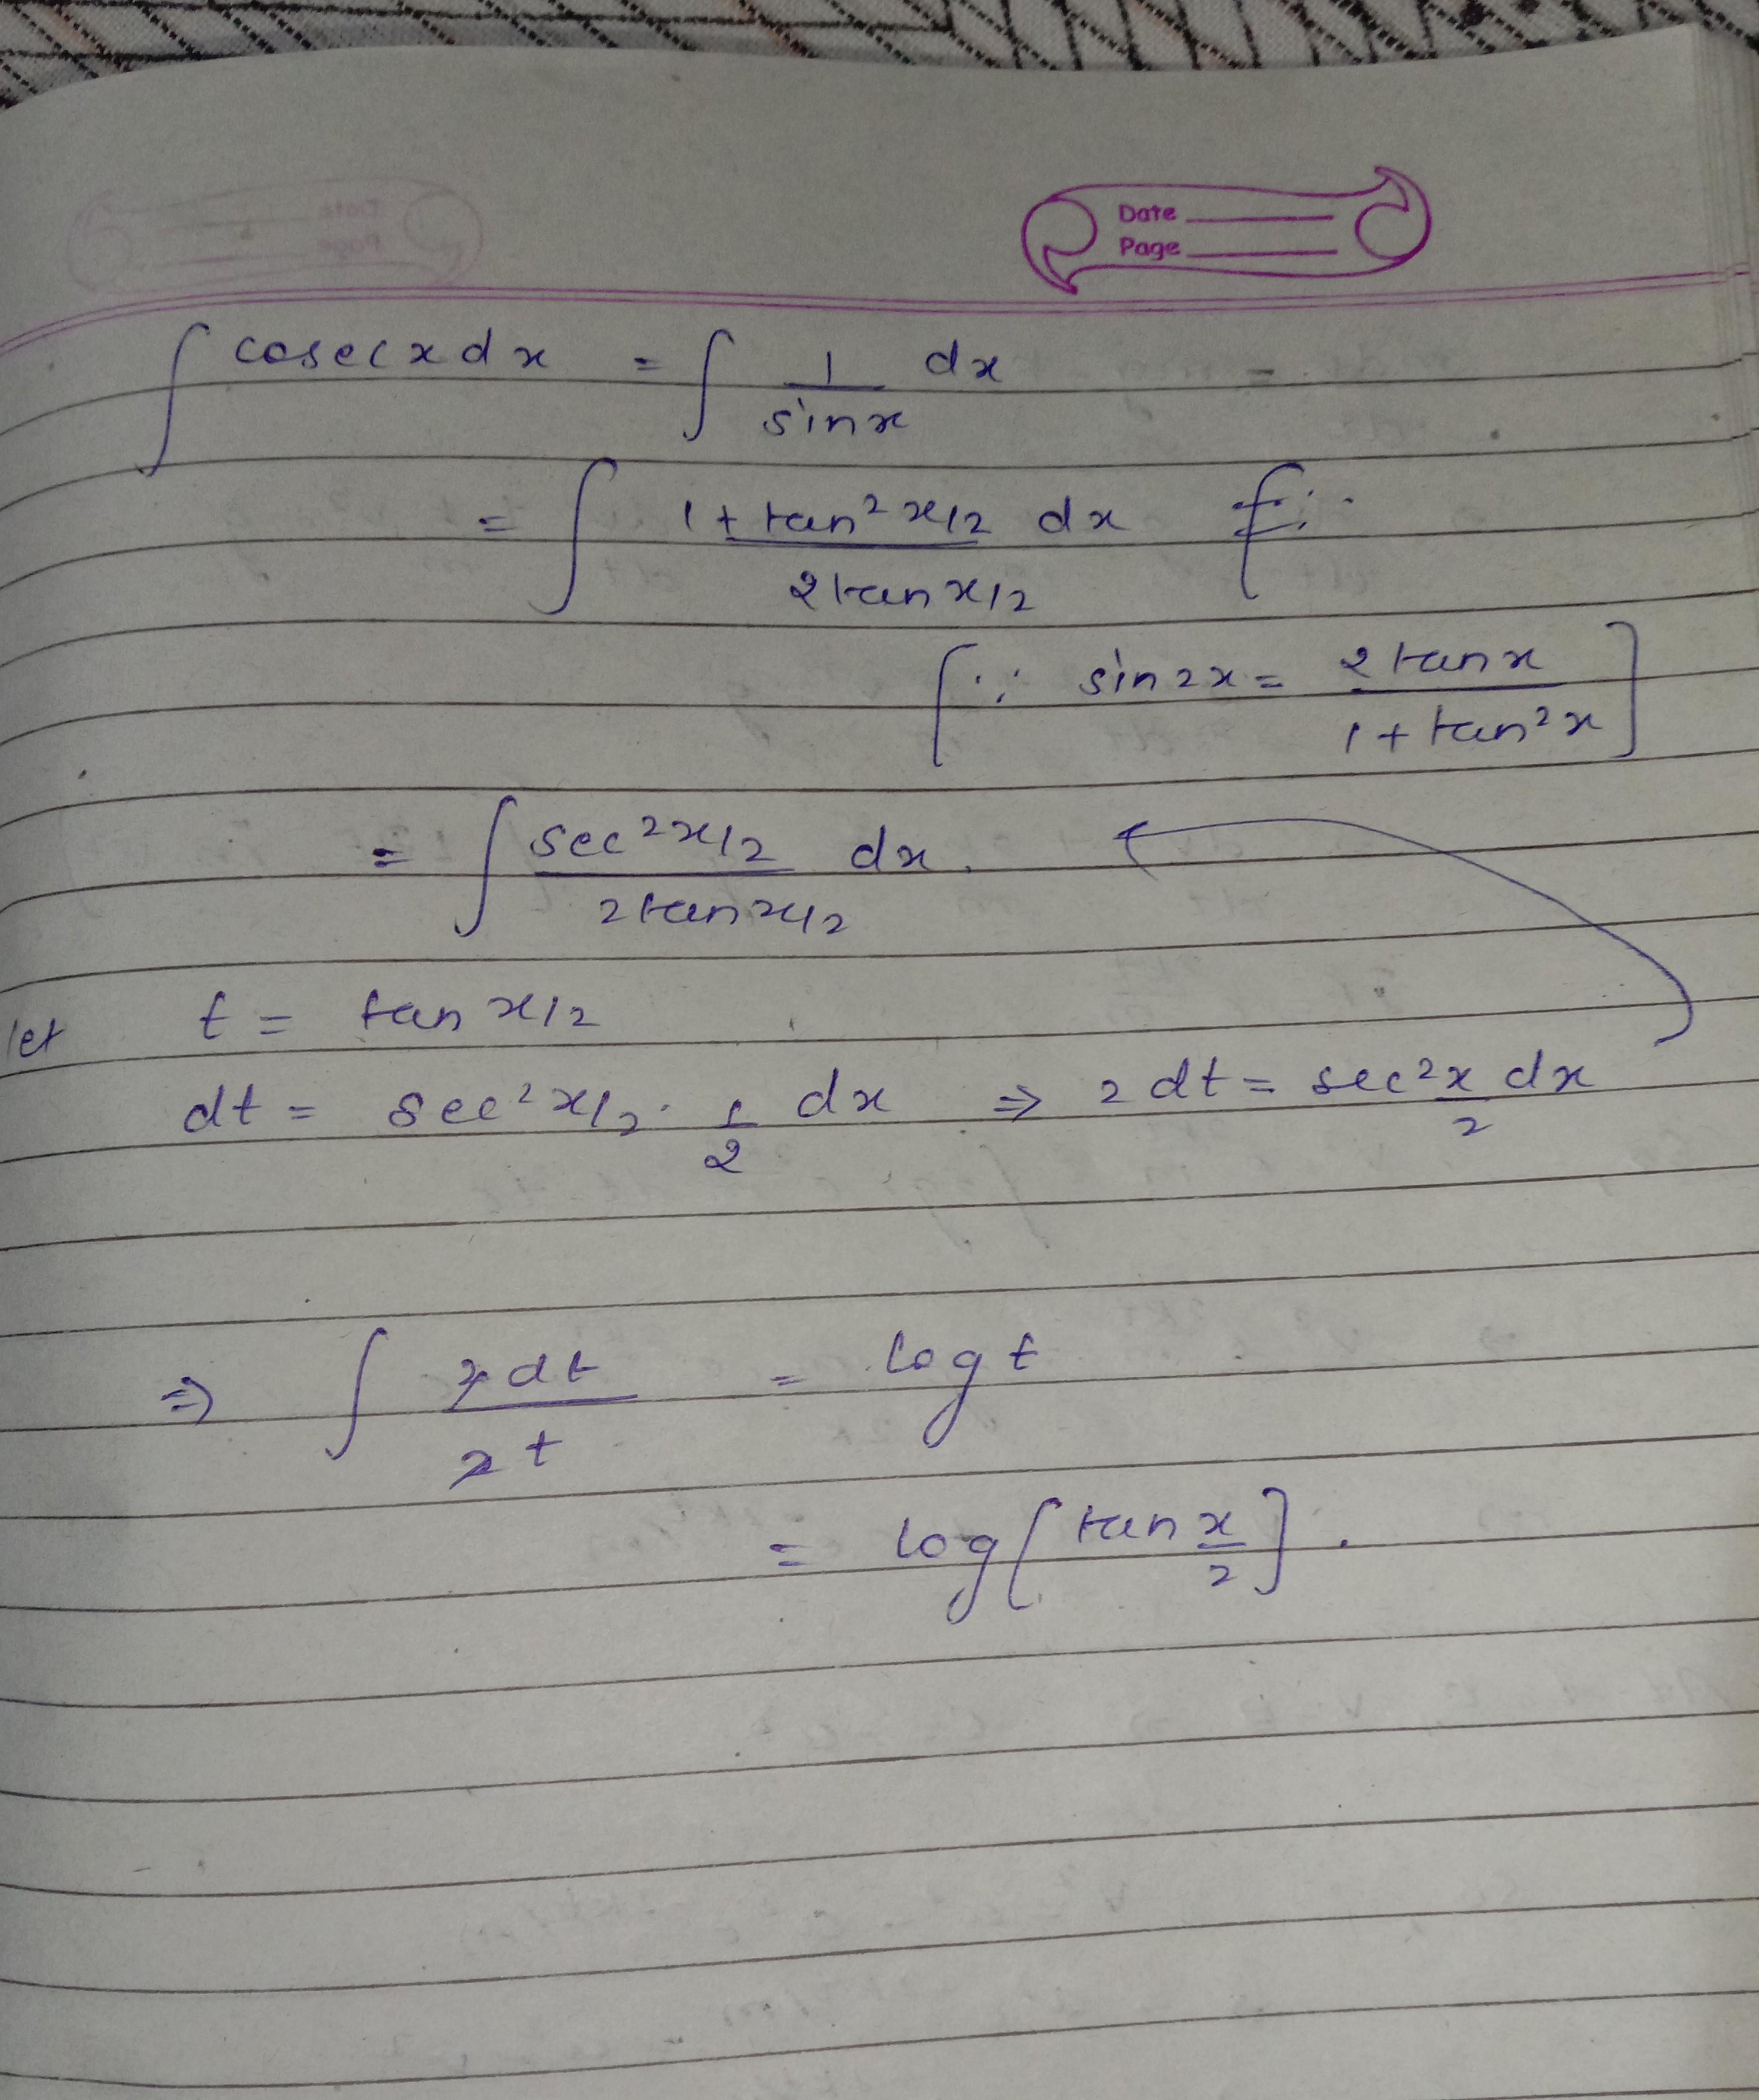 Date
Page
∫ cosec x dx = ∫ 1/sinx dx
= ∫ 1 + tan² x/2 / 2 tan x/2 dx
[∵ sin 2x = 2 tan x / 1 + tan² x]
= ∫ sec² x/2 / 2 tan x/2 dx.
let t = tan x/2
dt = sec² x/2 · 1/2 dx ⇒ 2 dt = sec² x/2 dx
⇒ ∫ 2 dt / 2 t = log t
= log [tan x/2].